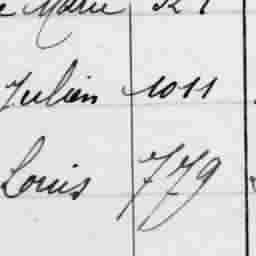 Marie
Julien 1011
Louis 779